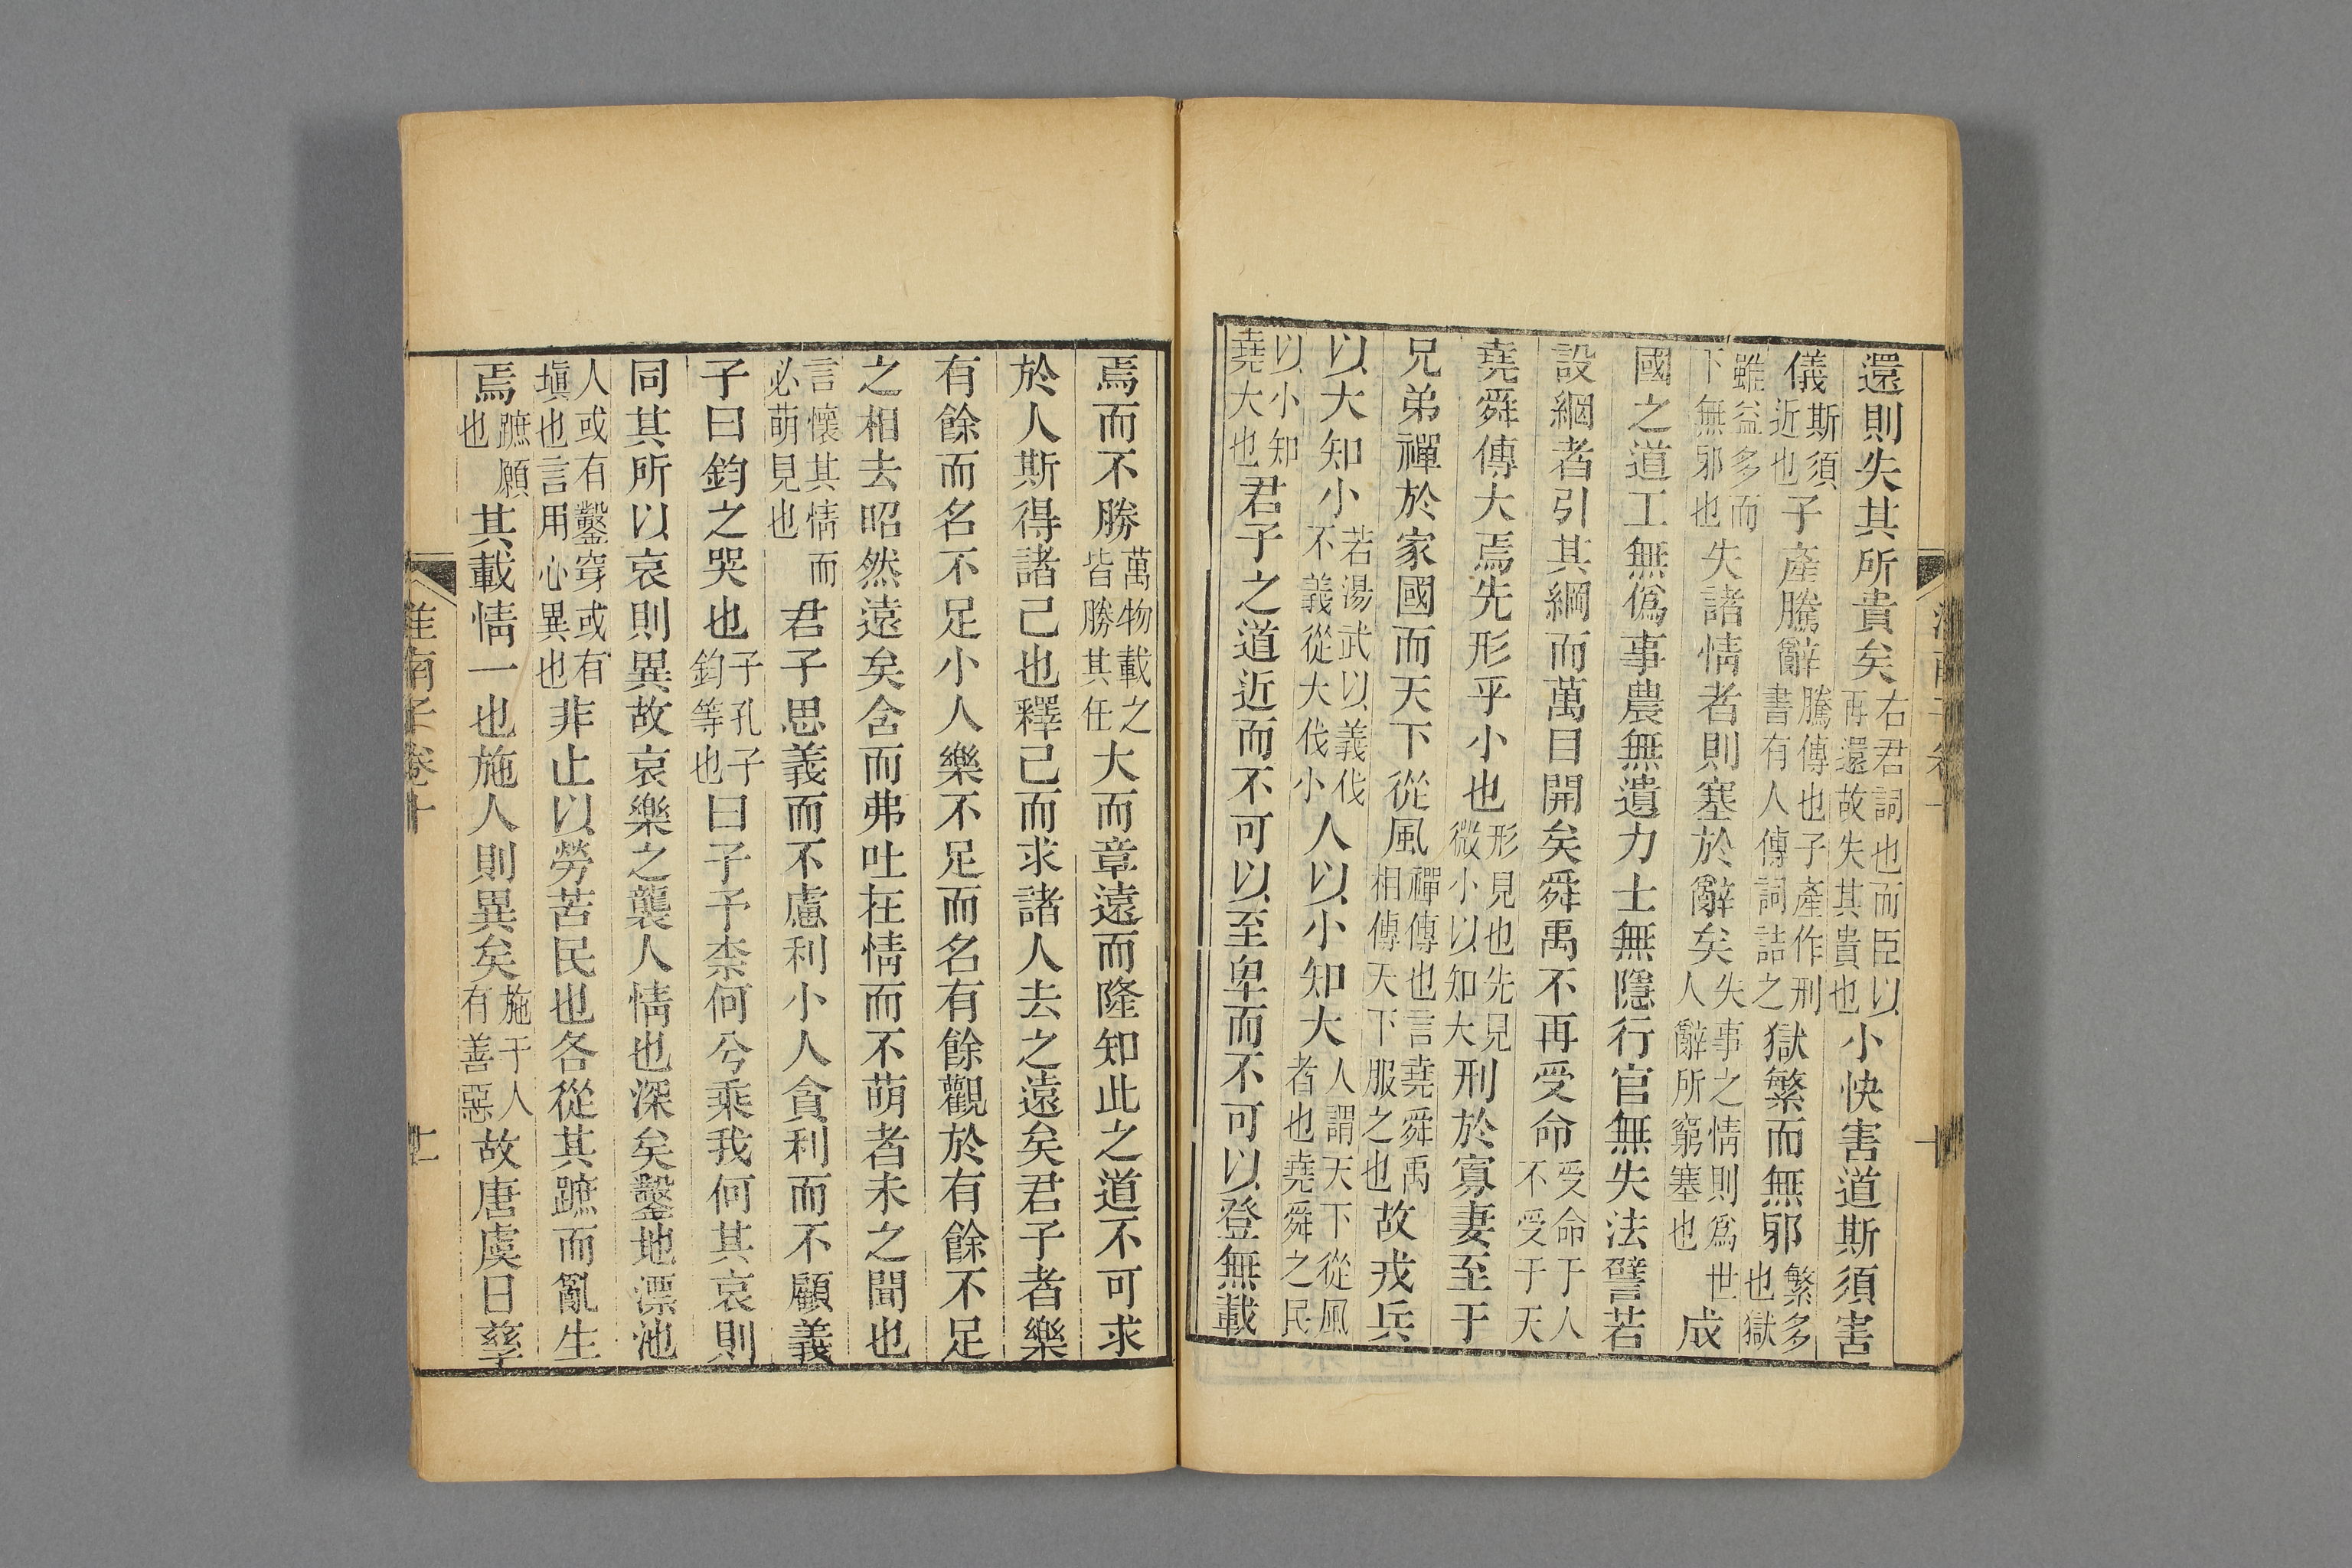 還則失其所貴矣右君詞也而臣以再還故失其貴也小快害道斯須害
儀斯須近也子產騰辭騰傳也子產作刑書有人傳詞詰之獄繁而無邪繁多也獄
雖益多而下無邪也失諸情者則塞於辭矣失事之情則爲世人辭所窮塞也成
國之道工無僞事農無遺力士無隱行官無失法譬若
設網者引其綱而萬目開矣舜禹不再受命受命于人不受于天
堯舜傳大焉先形乎小也形見也先見微小以知大刑於寡妻至于
兄弟禪於家國而天下從風禪傳也言堯舜禹相傳天下服之也故戎兵
以大知小若湯武以義伐不義從大伐小人以小知大人謂天下從風者也堯舜之民
以小知堯大也君子之道近而不可以至卑而不可以登無載
焉而不勝萬物載之皆勝其任大而章遠而隆知此之道不可求
於人斯得諸己也釋己而求諸人去之遠矣君子者樂
有餘而名不足小人樂不足而名有餘觀於有餘不足
之相去昭然遠矣含而弗吐在情而不萌者未之聞也
言懷其情而必萌見也君子思義而不慮利小人貪利而不顧義
子曰鈞之哭也子孔子鈞等也曰子予柰何兮乘我何其哀則
同其所以哀則異故哀樂之襲人情也深矣鑿地漂池
人或有鑿穿或有塡也言用心異也非止以勞苦民也各從其蹠而亂生
焉蹠願也其載情一也施人則異矣施于人有善惡故唐虞日孳
淮南子卷十
十一